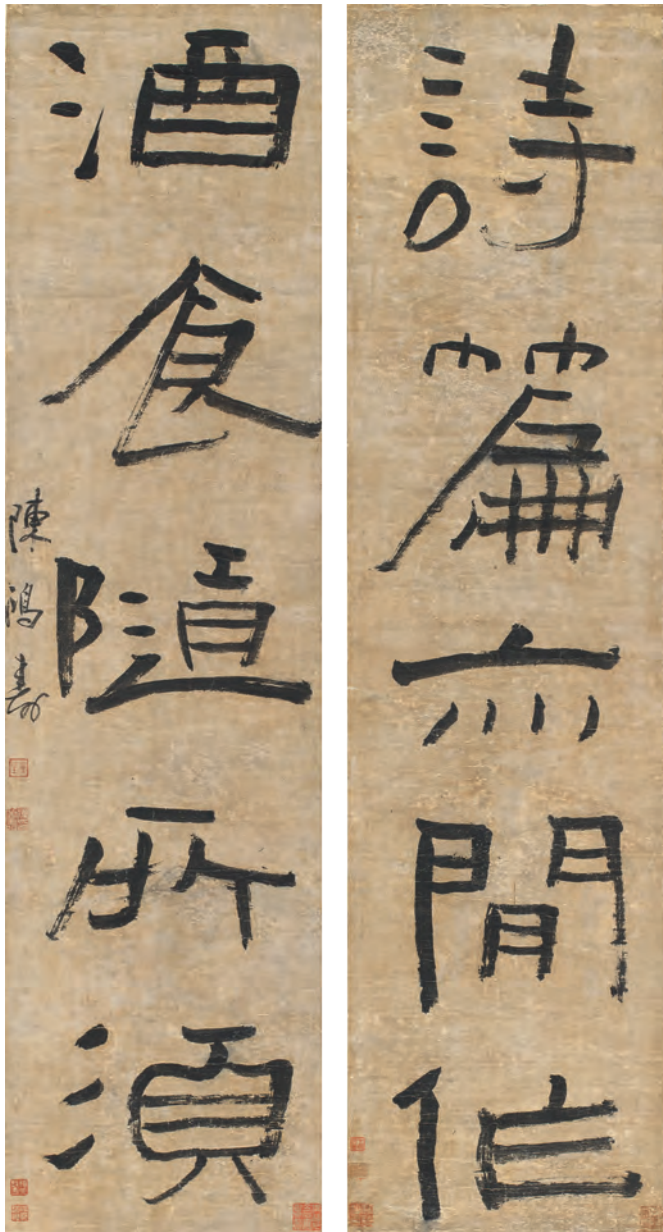 詩篇亦間作
酒食隨所須
陳鴻壽